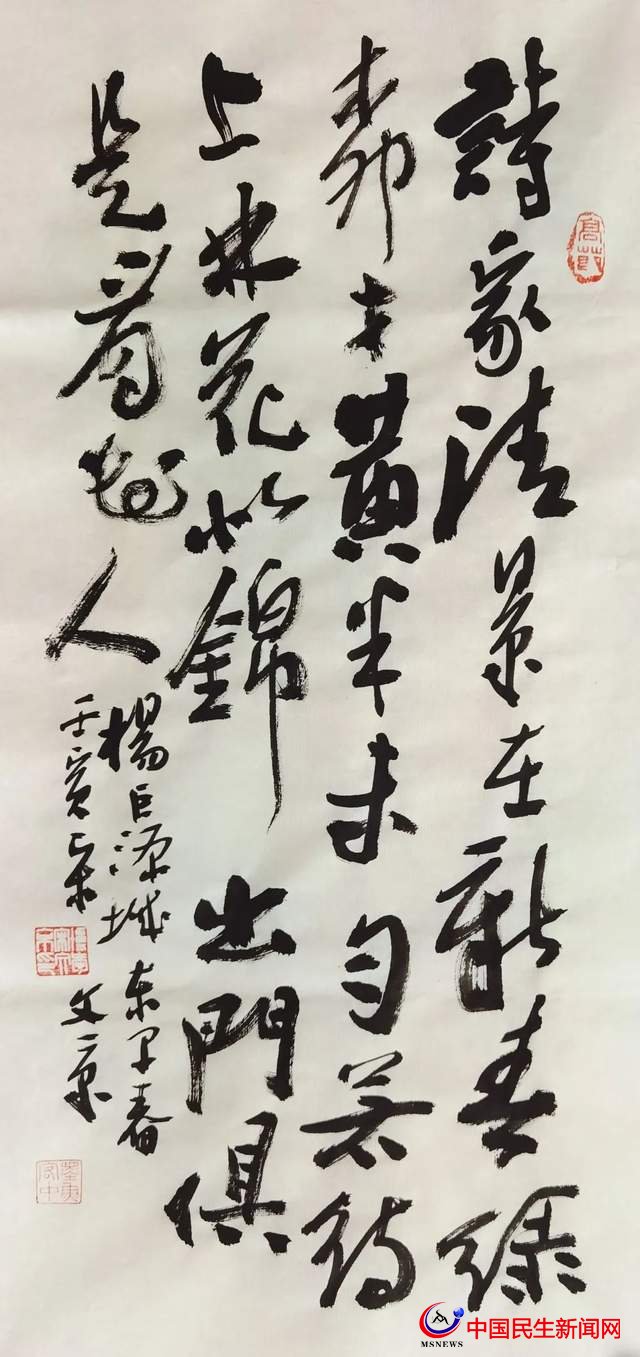 詩家清景在新春綠
柳才黃半未勻若待
上林花似錦出門俱
是看花人
楊巨源城東早春
壬寅宋文京
中国民生新闻网
MSNEWS